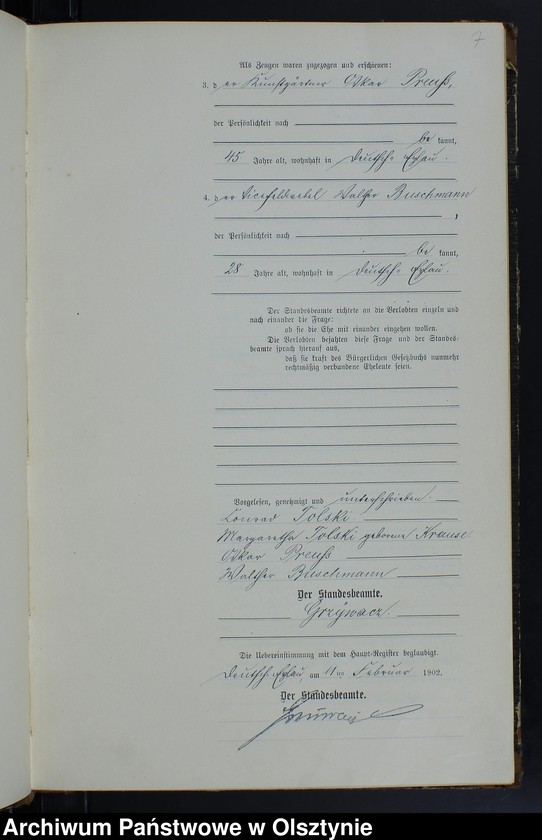 7
Als Zeugen waren zugezogen und erschienen:
3. der Kunstgärtner Oskar Preuß,
der Persönlichkeit nach
be kannt,
45 Jahre alt, wohnhaft in Deutsch-Eylau.
4. der Vicefeldwebel Walther Buschmann
,
der Persönlichkeit nach
be kannt,
28 Jahre alt, wohnhaft in Deutsch-Eylau.
Der Standesbeamte richtete an die Verlobten einzeln und
nach einander die Frage:
ob sie die Ehe mit einander eingehen wollen.
Die Verlobten bejahten diese Frage und der Standes-
beamte sprach hierauf aus,
daß sie kraft des Bürgerlichen Gesetzbuchs nunmehr
rechtmäßig verbundene Eheleute seien.
Vorgelesen, genehmigt und unterschrieben.
Conrad Tolski
Margaretha Tolski geborene Krause
Oskar Preuß
Walther Buschmann
Der Standesbeamte.
Grzywacz.
Die Uebereinstimmung mit dem Haupt-Register beglaubigt.
Deutsch-Eylau, am 11ten Februar 1902.
Der Standesbeamte.
Archiwum Państwowe w Olsztynie